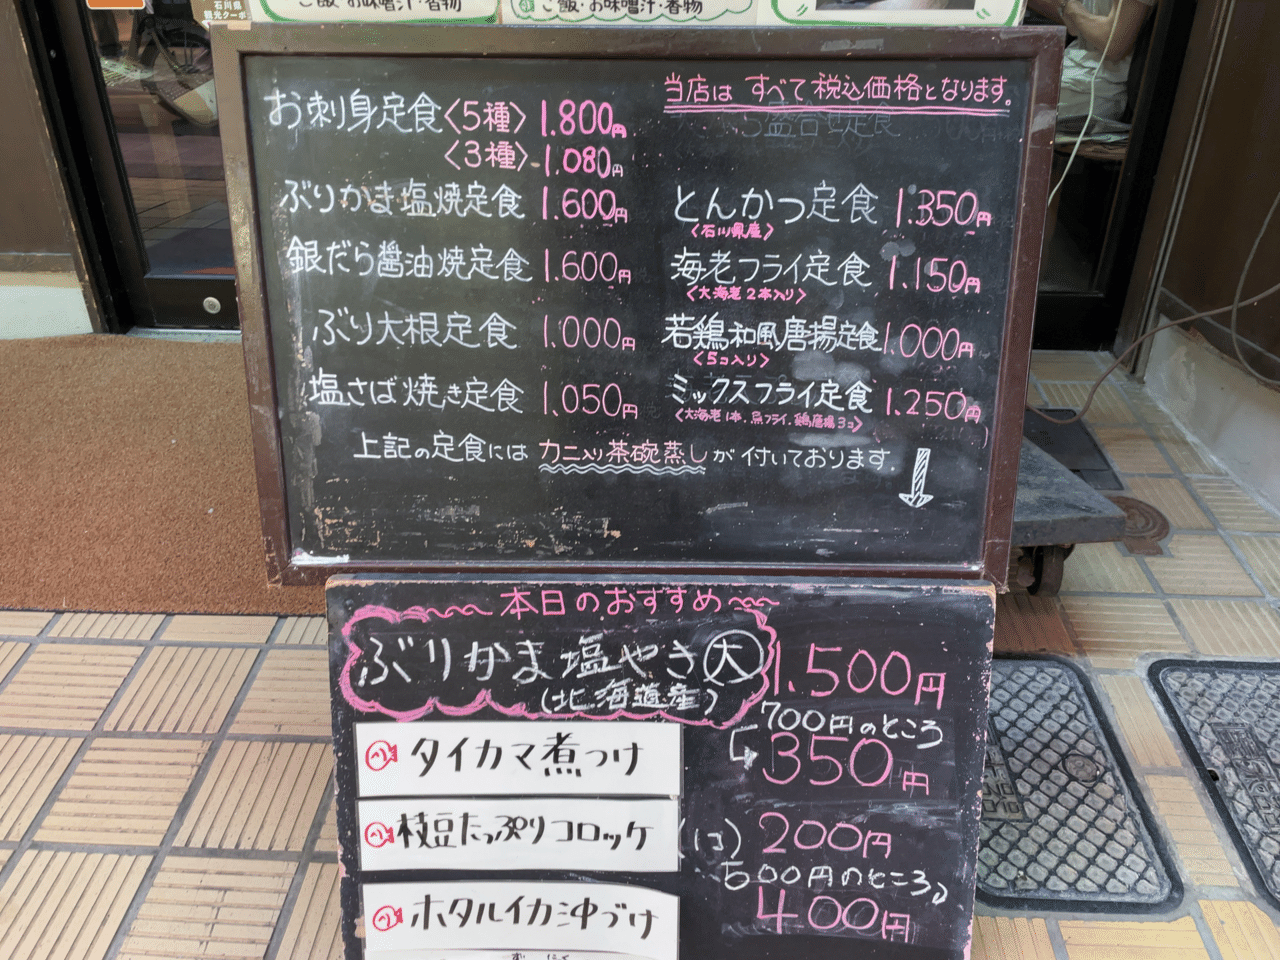 石川県
観光クーポ
ご飯・お味噌汁・香物
ご飯・お味噌汁・香物
当店は すべて税込価格となります。
お刺身定食〈5種〉 1.800円
〈3種〉 1.080円
ぶりかま塩焼定食 1.600円
銀だら醤油焼定食 1.600円
ぶり大根定食 1.000円
塩さば焼き定食 1.050円
とんかつ定食 1.350円
〈石川県産〉
海老フライ定食 1.150円
〈大海老2本入り〉
若鶏和風唐揚定食 1.000円
〈5コ入り〉
ミックスフライ定食 1.250円
〈大海老1本.魚フライ.鶏唐揚3コ〉
上記の定食には カニ入り茶碗蒸しが 付いております.
本日のおすすめ
ぶりかま塩やき大 1.500円
(北海道産)
タイカマ煮つけ
700円のところ
350円
枝豆たっぷりコロッケ (1コ) 200円
ホタルイカ沖づけ
500円のところ
400円